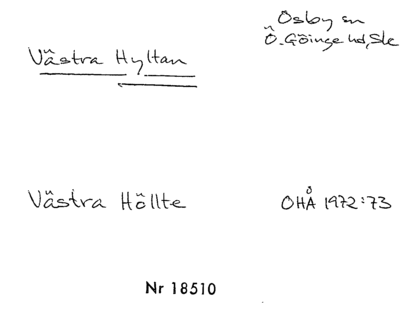 Osby sn
Västra Hyltan
Ö. Göinge hd, Ske
Västra Höllte
OHÅ 1972:73
Nr 18510